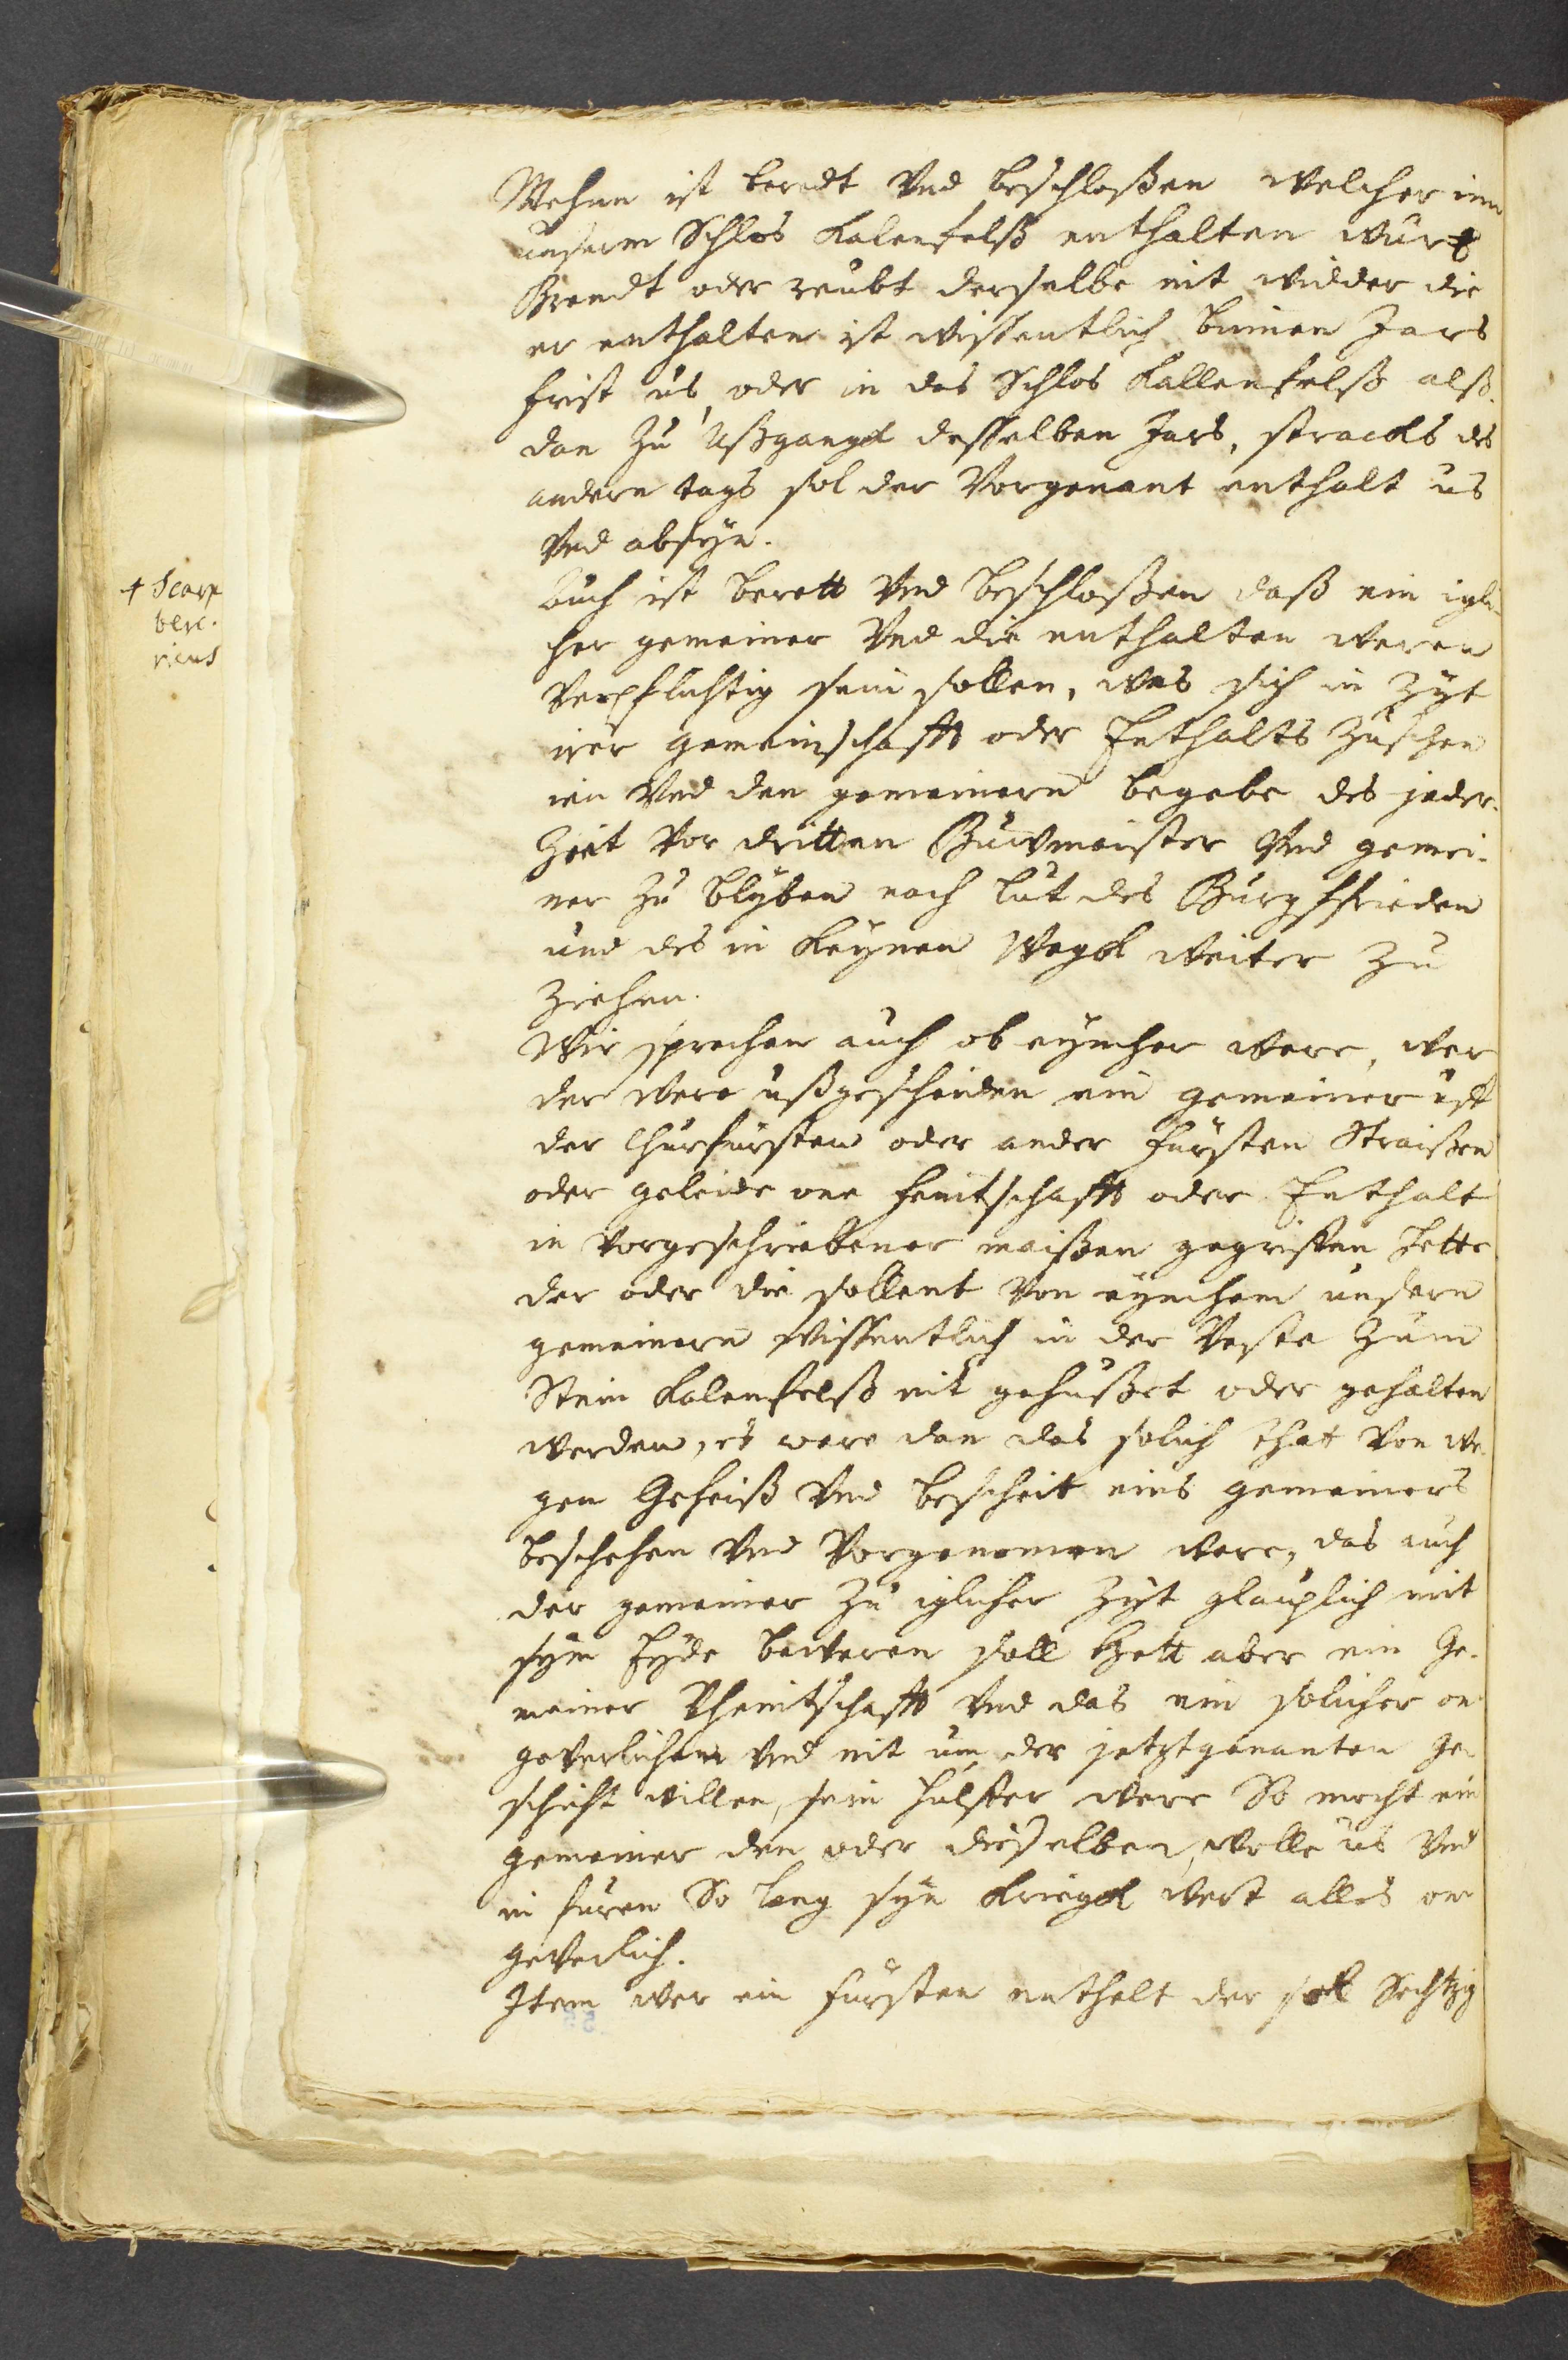 Mehrer ist beredt Vnd beschloßen welcher inn
unserm Schlos Kalenfelß enthalten wurt
Brendt oder reubt derselbe nit widder die
er enthalten ist wissentlich binnen Jars
frist us, oder in das Schlos Kallenfelß alß
dan Zu Ußgangk desselben Jars, stracks des
andern tags sol der Vorgenant enthalt us
Vnd absyn.
Auch ist berett Vnd beschloßen daß ein igli-
cher gemeiner Vnd die enthalten weren
Verpflichtig sein sollen, was sich in Zyt
irer gemeinschafft oder Enthalts Zuschen
ien Vnd den gemeinern begebe des jeder-
Zeit Vor dritten Buwmeister Vnd gemei-
ner Zu blyben nach lut des Burgffrieden
und des in keynen Wegk weiter Zu
Ziehen.
Wir sprechen auch ob eyncher were, wer
der were ußgescheiden ein gemeiner uff
der Churfursten oder ander fursten Straißen
oder geleide one feintschafft oder Enthalt
in Vorgeschriebener maißen gegriffen hette
der oder die sollent Von eynchem unsern
gemeinern wissentlich in der Veste Zum
Stein Kalenfelß nit gehußet oder gehalten
werden, es were dan das solich that Von we-
gen Geheiß Vnd bescheit eins gemeiners
beschehen Vnd Vorgenomen were, das auch
der gemeiner Zu iglicher Zyt glauplich mit
sym Eyde beweren soll Hett aber ein Ge-
meiner Vheintschafft Vnd das ein solicher on
geverlichen Vnd nit um der jetztgenanten ge-
schicht willen, sein hulffer were So mocht ein
gemeiner den oder dieselben, wolle us Vnd
in furen So lang syn kriegk wert alles on
geverlich.
Item wer ein fursten enthelt der soll Sechtzig